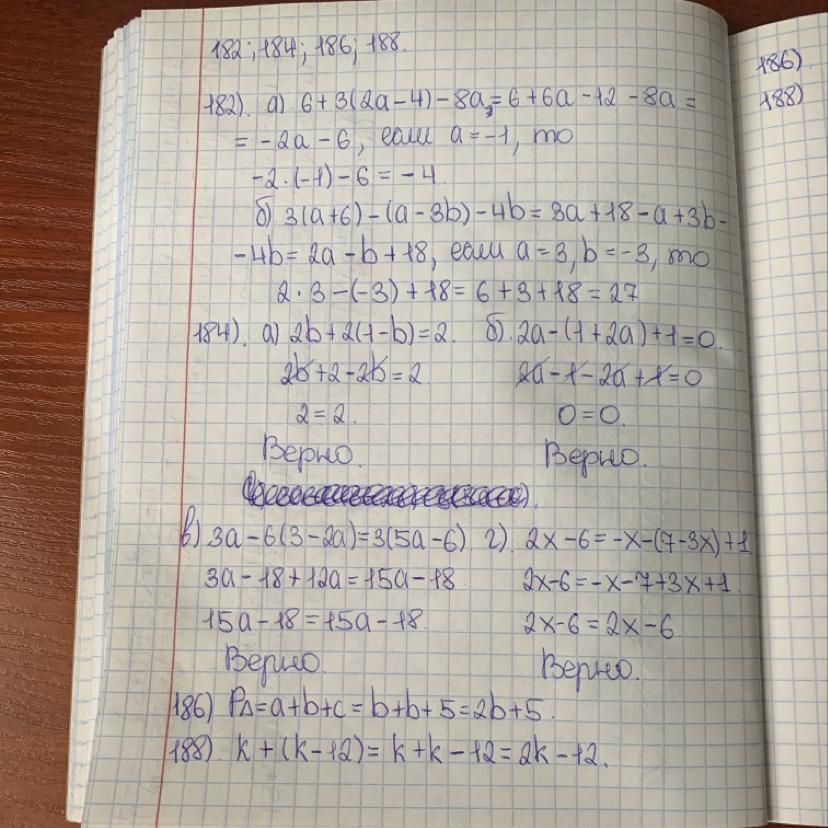 182; 184; 186; 188.
182). а) 6+3(2a-4)-8a = 6+6a-12-8a =
= -2a-6, если a=-1, то
-2·(-1)-6 = -4
б) 3(a+6)-(a-3b)-4b = 3a+18-a+3b-
-4b = 2a-b+18, если a=3, b=-3, то
2·3-(-3)+18 = 6+3+18 = 27
184). а) 2b+2(1-b)=2. б). 2a-(1+2a)+1=0.
2b+2-2b=2. 2a-1-2a+1=0
2=2. 0=0.
Верно. Верно.
в) 3a-6(3-2a)=3(5a-6) г). 2x-6=-x-(7-3x)+1
3a-18+12a=15a-18 2x-6=-x-7+3x+1.
15a-18=15a-18. 2x-6=2x-6
Верно. Верно.
186) P△=a+b+c=b+b+5=2b+5.
188). k+(k-12)=k+k-12=2k-12.
186).
188)